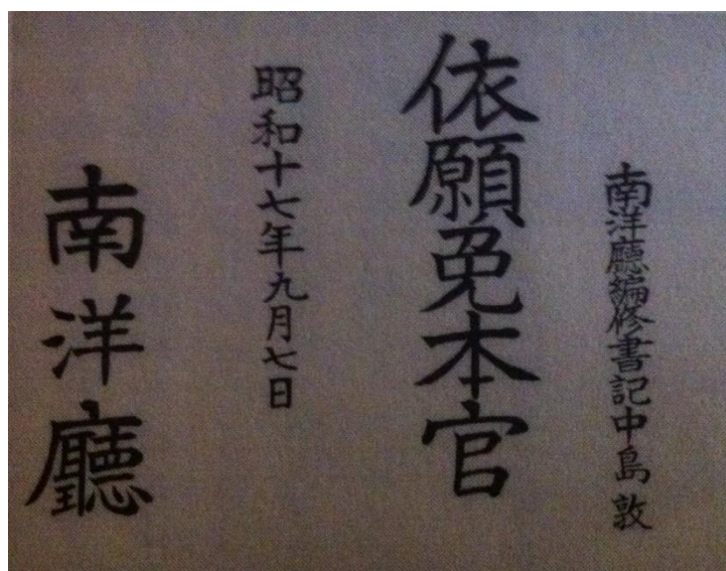 南洋廳編修書記中島敦
依願免本官
昭和十七年九月七日
南洋廳